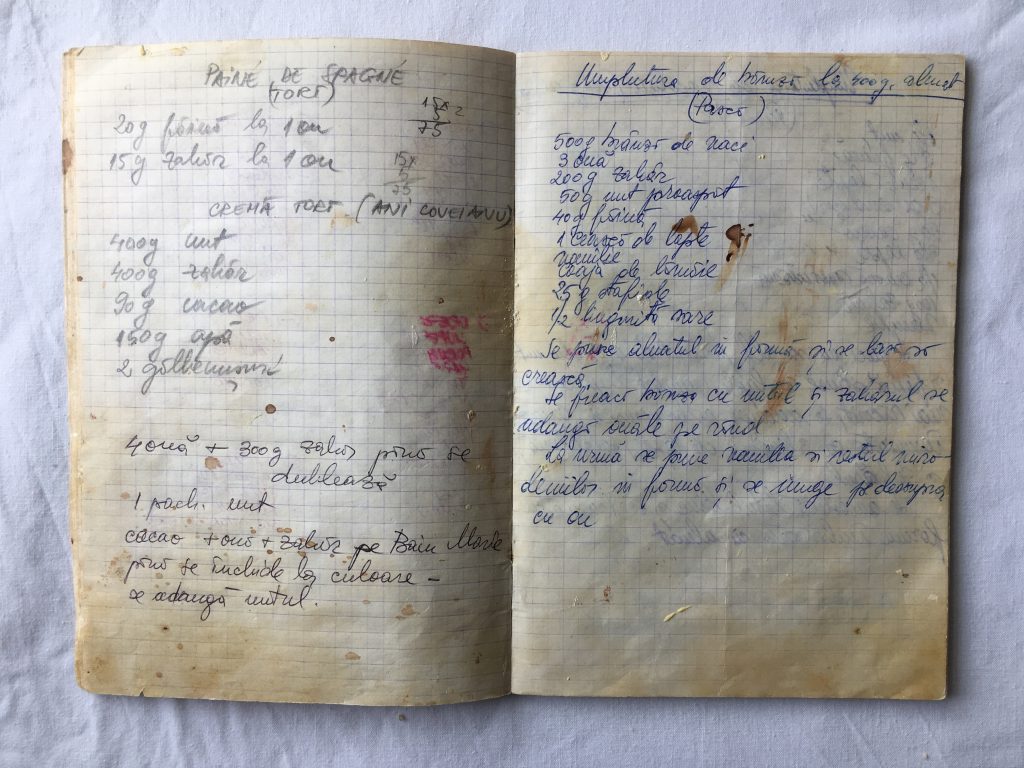 PAINE DE SPAGNE
(TORT)
20g făină la 1 ou
15 x
5
75
15g zahăr la 1 ou
15x
5
75
CREMĂ TORT (ANI
400g unt
400g zahăr
90g cacao
150g apă
2 gălbenusuri
4 ouă + 300g zahăr până se
dublează
1 pach. unt
cacao + ouă + zahăr pe Bain Marie
până se închide la culoare -
se adaugă untul.
Umplutura de brânză la 400g. aluat
(Pască)
500g brânză de vaci
3 ouă
200g zahăr
50g unt proaspăt
40g făină
1 ceașcă de lapte
vanilie
coaja de lămâie
25g stafide
1/2 linguriță sare
Se pune aluatul in formă și se lasă să
crească
Se freacă brânza cu untul și zahărul se
adaugă ouăle pe rând
La urmă se pune vanilia si restul
in formă și se unge pe deasupra
cu ou